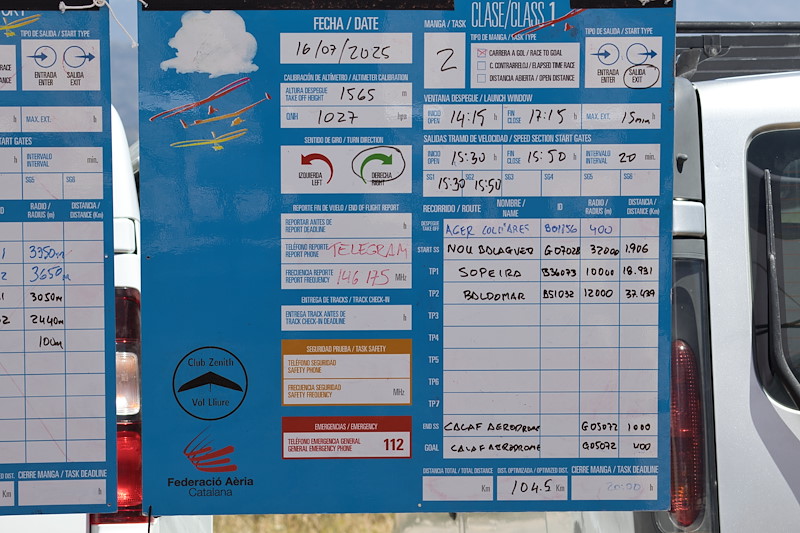 TIPO DE SALIDA / START TYPE
ENTRADA ENTER
SALIDA EXIT
MAX. EXT. h
START GATES
INTERVALO INTERVAL min.
SG5 SG6
RADIO / RADIUS (m) DISTANCIA / DISTANCE (Km)
3350m
3650m
3050m
2440m
100m
CIERRE MANGA / TASK DEADLINE
Km h
FECHA / DATE
16/07/2025
CALIBRACIÓN DE ALTÍMETRO / ALTIMETER CALIBRATION
ALTURA DESPEGUE TAKE OFF HEIGHT 1565 m
QNH 1027 hpa
SENTIDO DE GIRO / TURN DIRECTION
IZQUIERDA LEFT
DERECHA RIGHT
REPORTE FIN DE VUELO / END OF FLIGHT REPORT
REPORTAR ANTES DE REPORT DEADLINE h
TELÉFONO REPORTE REPORT PHONE TELEGRAM
FRECUENCIA REPORTE REPORT FREQUENCY 146 175 MHz
ENTREGA DE TRACKS / TRACK CHECK-IN
ENTREGA TRACK ANTES DE TRACK CHECK-IN DEADLINE h
SEGURIDAD PRUEBA / TASK SAFETY
TELÉFONO SEGURIDAD SAFETY PHONE
FRECUENCIA SEGURIDAD SAFETY FREQUENCY MHz
EMERGENCIAS / EMERGENCY
TELÉFONO EMERGENCIA GENERAL GENERAL EMERGENCY PHONE 112
Club Zenith
Vol Lliure
Federació Aèria
Catalana
MANGA / TASK CLASE/CLASS 1
2
TIPO DE MANGA / TASK TYPE
CARRERA A GOL / RACE TO GOAL
C. CONTRARRELOJ / ELAPSED TIME RACE
DISTANCIA ABIERTA / OPEN DISTANCE
TIPO DE SALIDA / START TYPE
ENTRADA ENTER
SALIDA EXIT
VENTANA DESPEGUE / LAUNCH WINDOW
INICIO OPEN 14:15 h FIN CLOSE 17:15 h MAX. EXT. 15min h
SALIDAS TRAMO DE VELOCIDAD / SPEED SECTION START GATES
INICIO OPEN 15:30 h FIN CLOSE 15:50 h INTERVALO INTERVAL 20 min.
SG1 15:30 SG2 15:50 SG3 SG4 SG5 SG6
RECORRIDO / ROUTE NOMBRE / NAME ID RADIO / RADIUS (m) DISTANCIA / DISTANCE (Km)
DESPEGUE TAKE OFF AGER COLL D'ARES 400
START SS G07028 32000 1.906
TP1 SOPEIRA B36073 10000 18.931
TP2 BALDOMAR B51032 12000 37.439
TP3
TP4
TP5
TP6
TP7
END SS CALAF AERODROME G05072 1000
GOAL CALAF AERODROME G05072 400
DISTANCIA TOTAL / TOTAL DISTANCE DIST. OPTIMIZADA / OPTIMIZED DIST. CIERRE MANGA / TASK DEADLINE
Km 104.5 Km 20:00 h